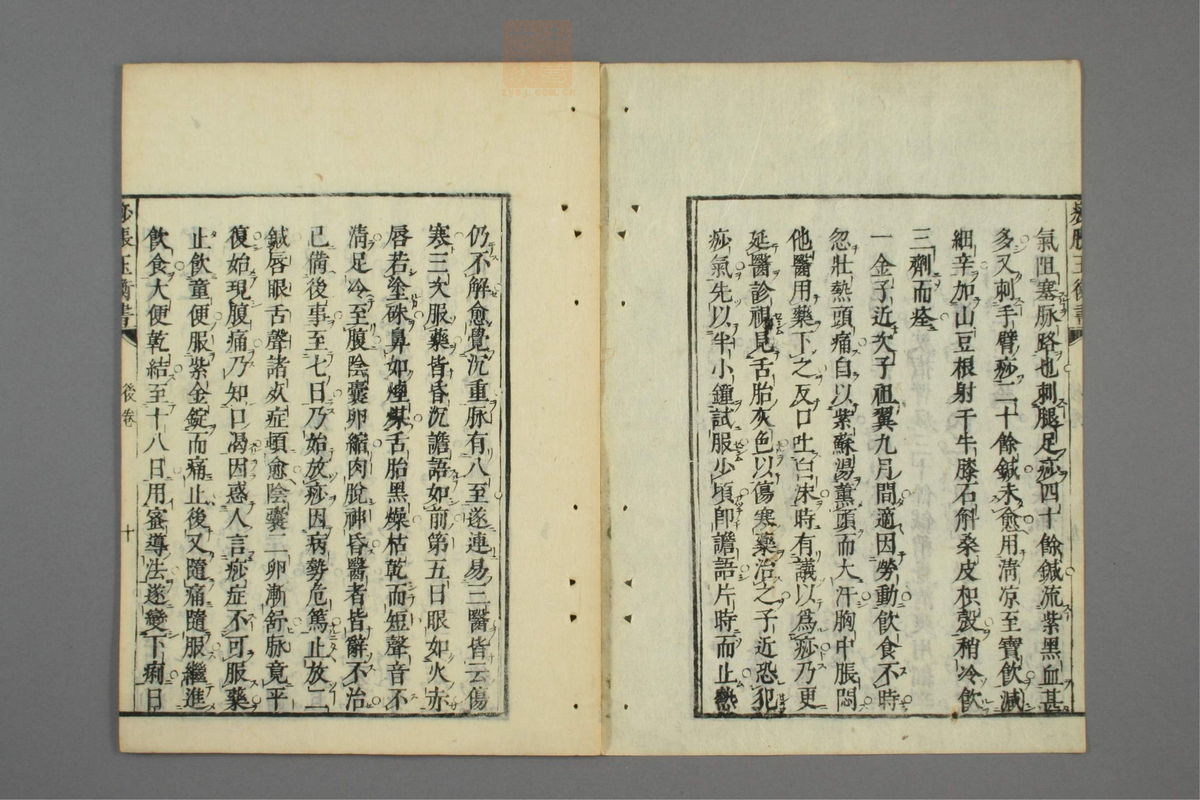 氣阻塞脉路也刺腿足痧四十餘鍼流紫黑血甚
多又刺手臂痧二十餘鍼未愈用清凉至寶飲減
細辛加山豆根射干牛膝石斛桑皮枳殼稍冷飲
三劑而痊
一金子近次子祖翼九月間適因勞動飲食不時
忽壯熱頭痛自以紫蘇湯薰頭而大汗胸中脹悶
他醫用藥下之反口吐白沫時有議以爲痧乃更
延醫診視見舌胎灰色以傷寒藥治之子近恐犯
痧氣先以半小鐘試服少頃卽譫語片時而止熱
仍不解愈覺沉重脉有八至遂連易三醫皆云傷
寒三次服藥皆昏沉譫語如前第五日眼如火赤
唇若塗硃鼻如煙煤舌胎黑燥枯乾而短聲音不
清足冷至腹陰囊卵縮肉脫神昏醫者皆辭不治
已備後事至七日乃始放痧因病勢危篤止放二
鍼唇眼舌聲諸症頓愈陰囊二卵漸舒脉竟平
復始現腹痛乃知口渴因惑人言痧症不可服藥
止飲童便服紫金錠而痛止後又隨痛隨服繼進
飲食大便乾結至十八日用蜜導法遂變下痢日
後卷
十